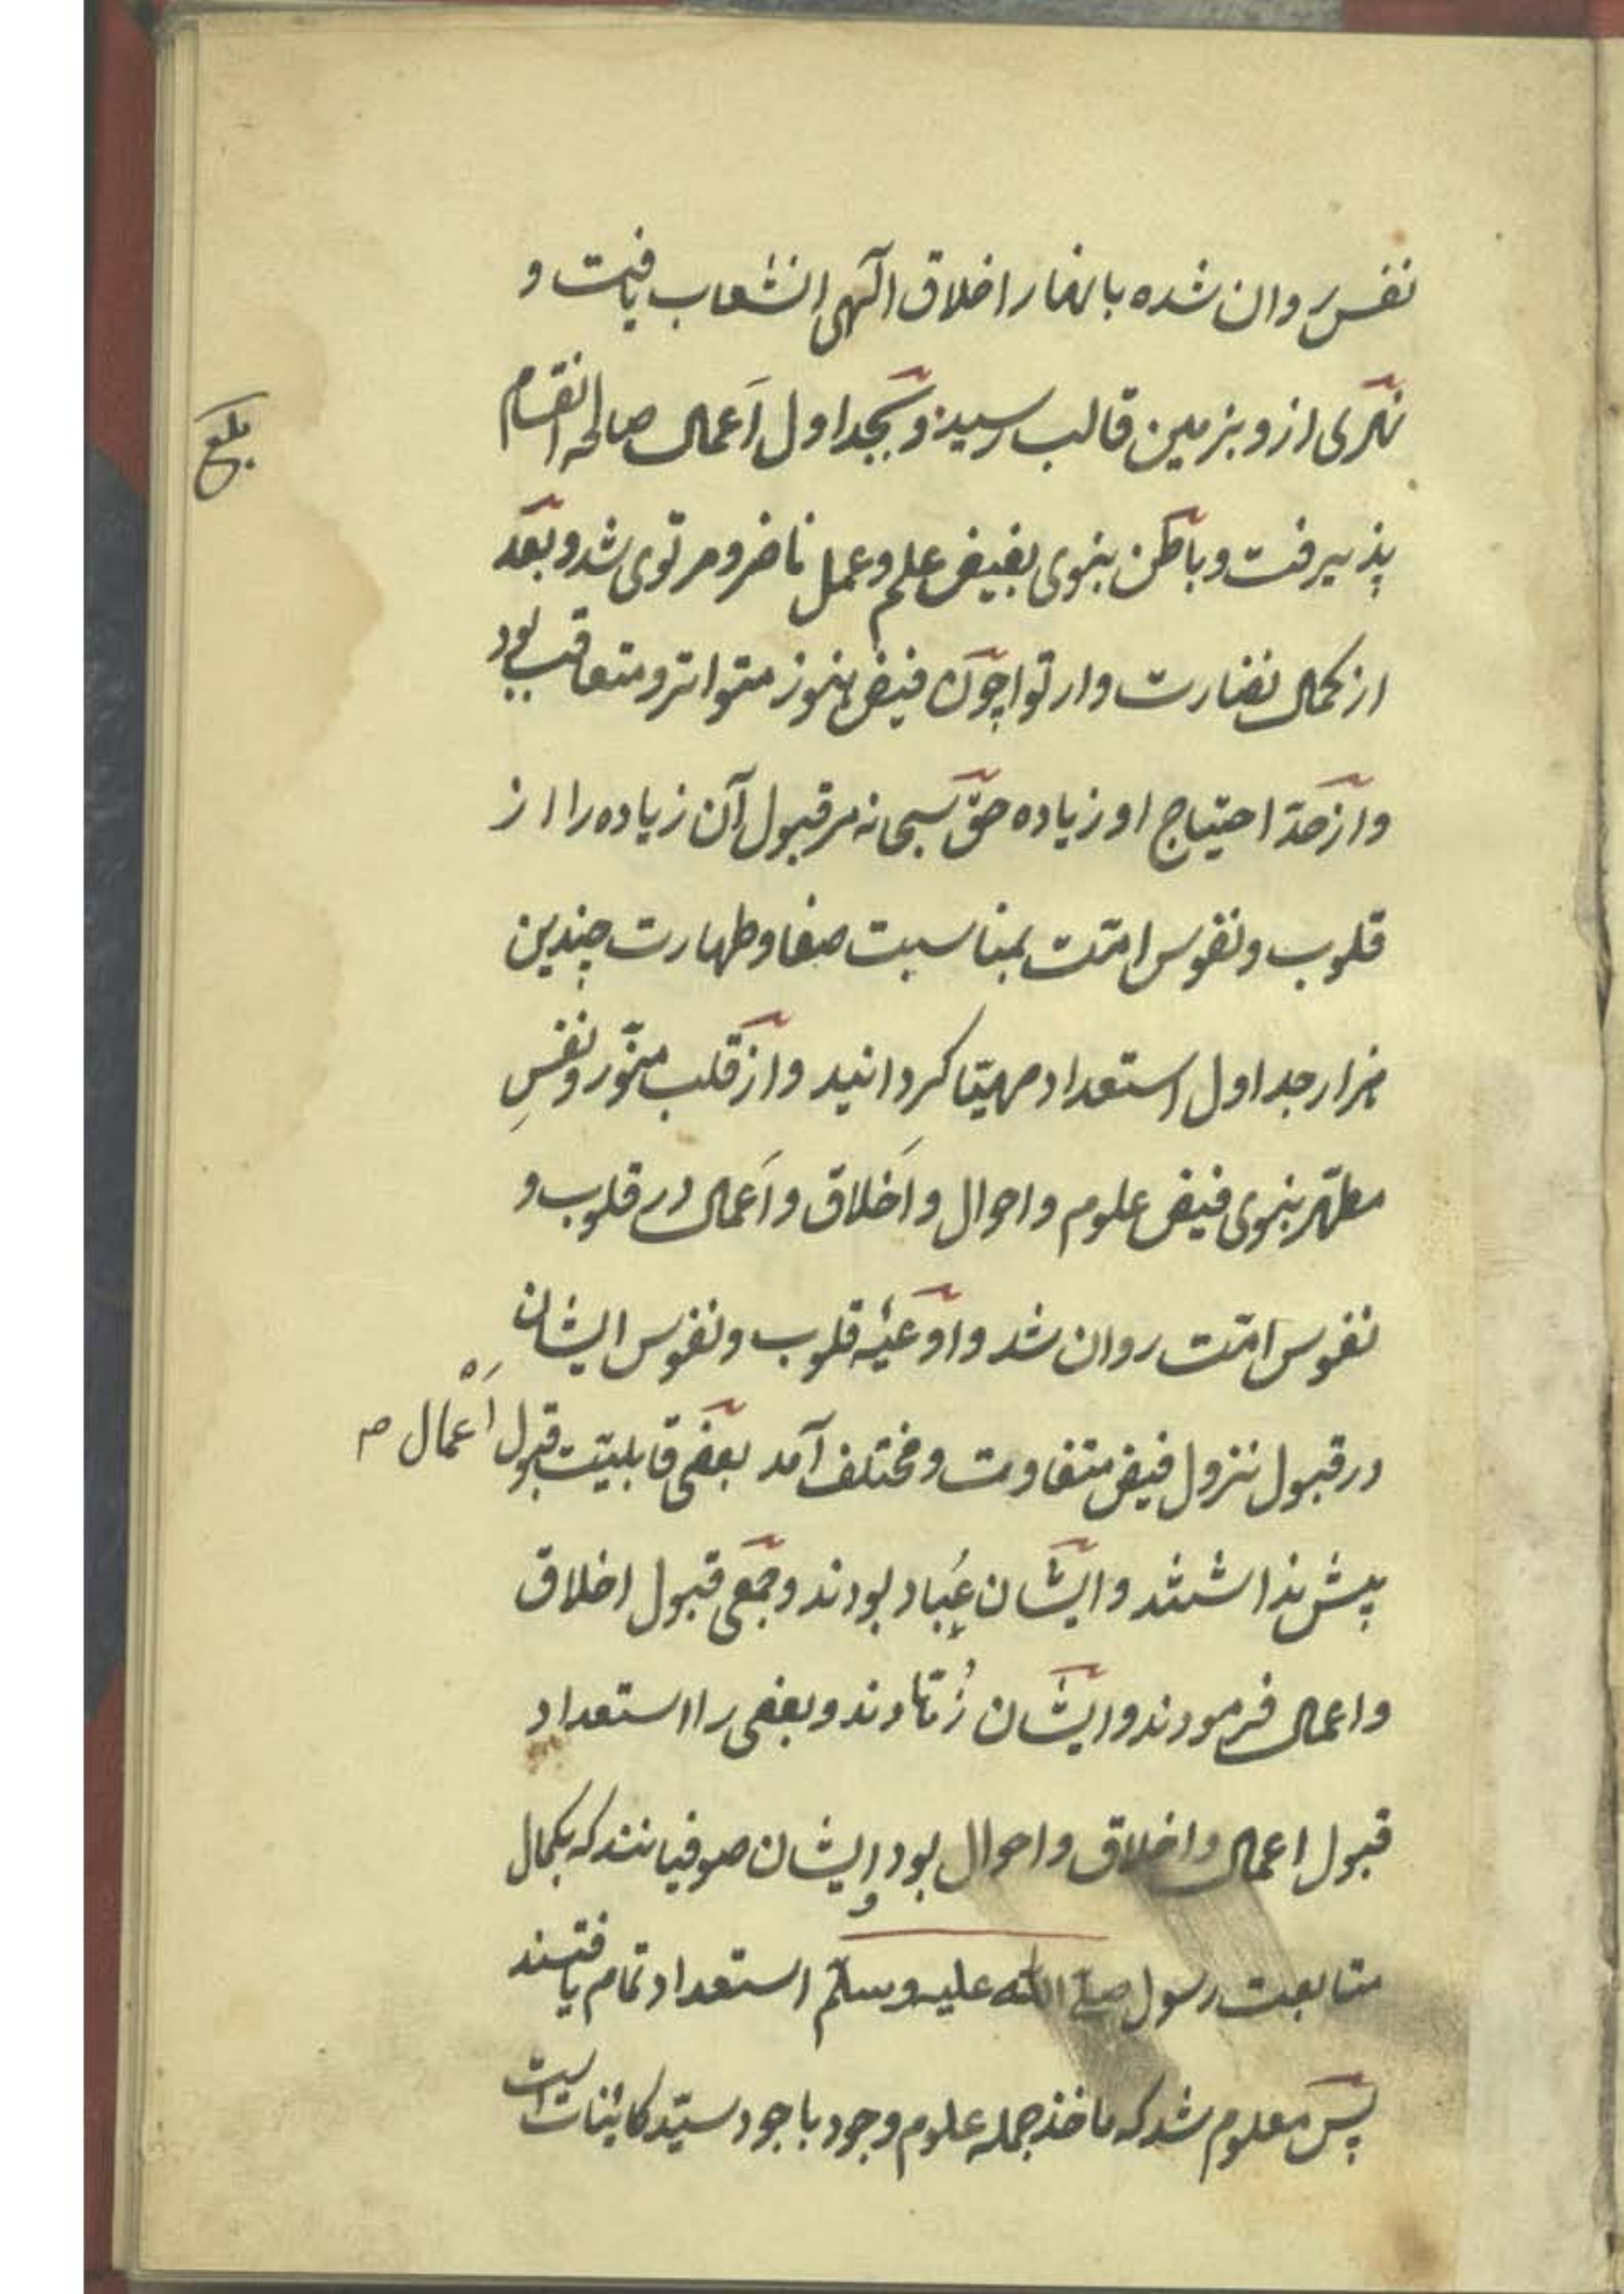 نفس روان شده بانهار اخلاق آلهی انشعاب یافت و
نهری ازو بزمین قالب رسید و بجداول اَعمال صالحه انقسام
بلغ
پذیرفت و باطن نبوی بفیض علم و عمل ناضر و مرتوی شد و بعد
از کمال نضارت و ارتوا چون فیض هنوز متواتر و متعاقب بود
و از حدّ احتیاج او زیاده حق سبحانه مر قبول آن زیاده را از
قلوب و نفوس امّت بمناسبت صفا و طهارت چندین
هزار جداول استعداد مهیّا کردانید و از قلب منوّر و نفسِ
مطهّر نبوی فیض علوم و احوال و اَخلاق و اَعمال در قلوب و
نفوس امّت روان شد و اوعیهٔ قلوب و نفوس ایشان
در قبول نزول فیض متفاوت و مختلف آمد بعضی قابلیّت قبول اَعمال
پیش نداشتند و ایشان عُباد بودند و جمعی قبول اخلاق
و اعمال فرمودند و ایشان زُهّادند و بعضی را استعداد
قبول اعمال و اخلاق و احوال بود و ایشان صوفیانند که بکمال
متابعت رسول صلی الله علیه وسلم استعداد تمام یافتند
پس معلوم شد که ماخذ جمله علوم وجود باجود سیّد کائنات است